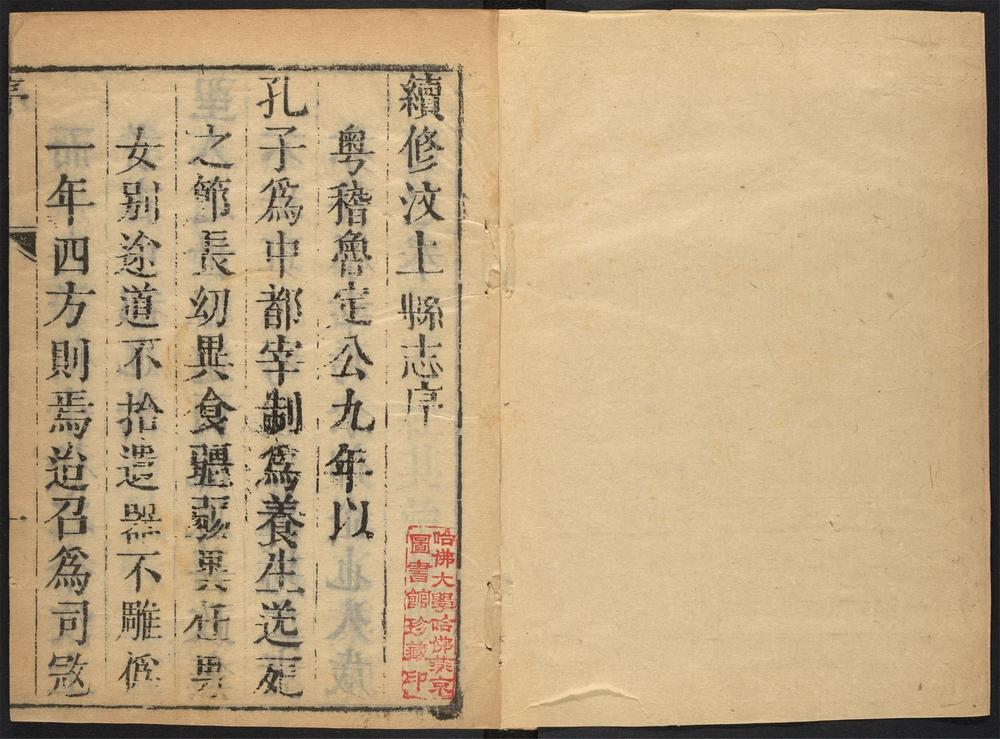 續修汶上縣志序
粤稽魯定公九年以
孔子爲中都宰制爲養生送死
之節長幼異食彊弱異任男
女別途道不拾遺器不雕僞
一年四方則焉迨召爲司寇
序
一
哈佛大學哈佛燕京
圖書館珍藏印